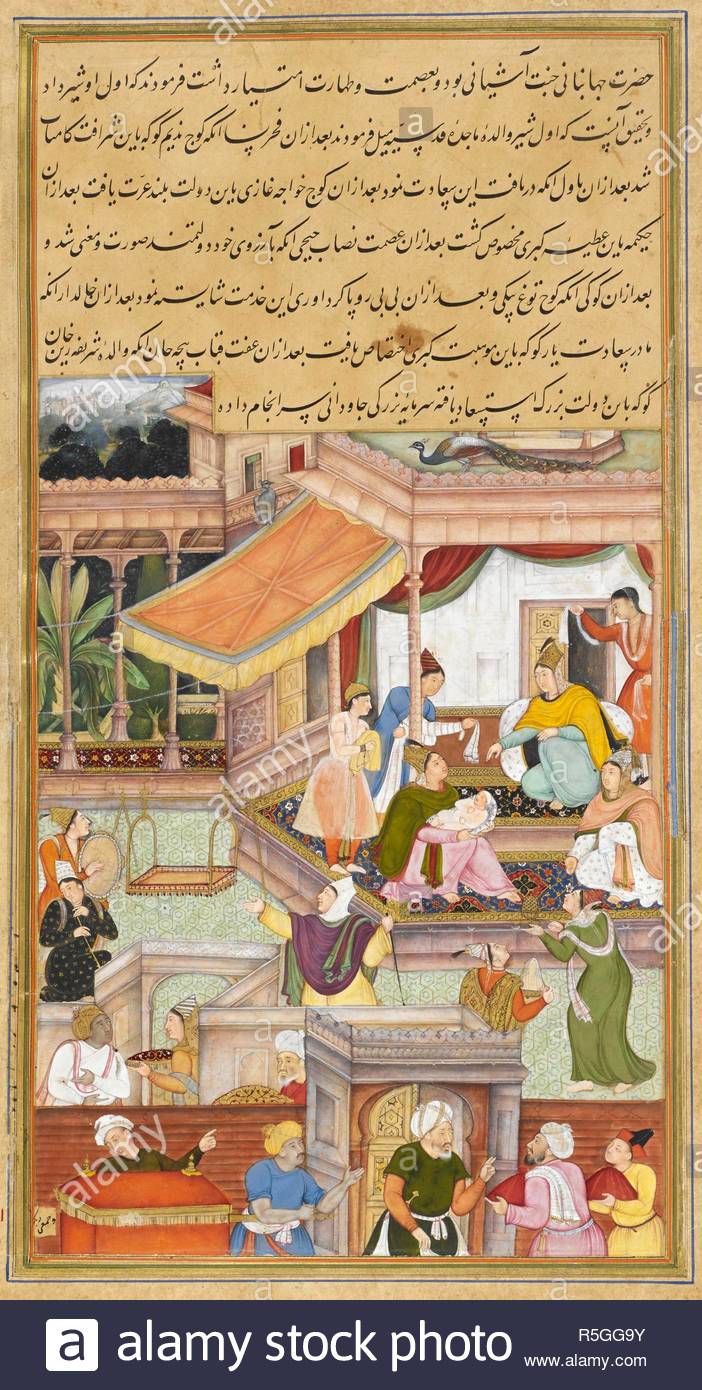 حضرت جهانبانی جنت آشیانی بود و بعصمت و طهارت امتیاز داشت فرمودند که اول او شیر داد
و تحقیق آنست که اول شیر والدهٔ ماجدهٔ قدسیه میل فرمودند بعد ازان فخر نسا انکه کوچ ندیم کوکه باین شرافت کامیاب
شد بعد ازان بهاول انکه دریافت این سعادت نمود بعد ازان کوچ خواجه غازی باین دولت بلند عزت یافت بعد ازان
حکیمه باین عطیه کبری مخصوص گشت بعد ازان عصمت نصاب جیجی انکه بآرزوی خود دولتمند صورت و معنی شد و
بعد ازان کوکی انکه کوچ توغ بیکی و بعد ازان بی بی روپا گرد آوری این خدمت شایسته نمود بعد ازان خالدار انکه
مادر سعادت یار کوکه باین موهبت کبری اختصاص یافت بعد ازان عفت قباب پیچه جان انکه والدهٔ شریفه زین خان
کوکه باین دولت بزرگ استسعاد یافته سرمایه بزرگی جاودانی سرانجام داده
alamy
a alamy stock photo
R5GG9Y
www.alamy.com